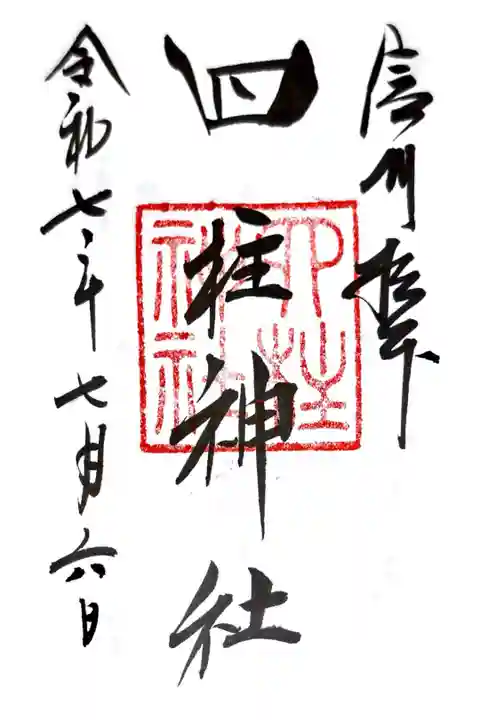 信州松本
四柱神社
四柱神社
令和七年七月六日